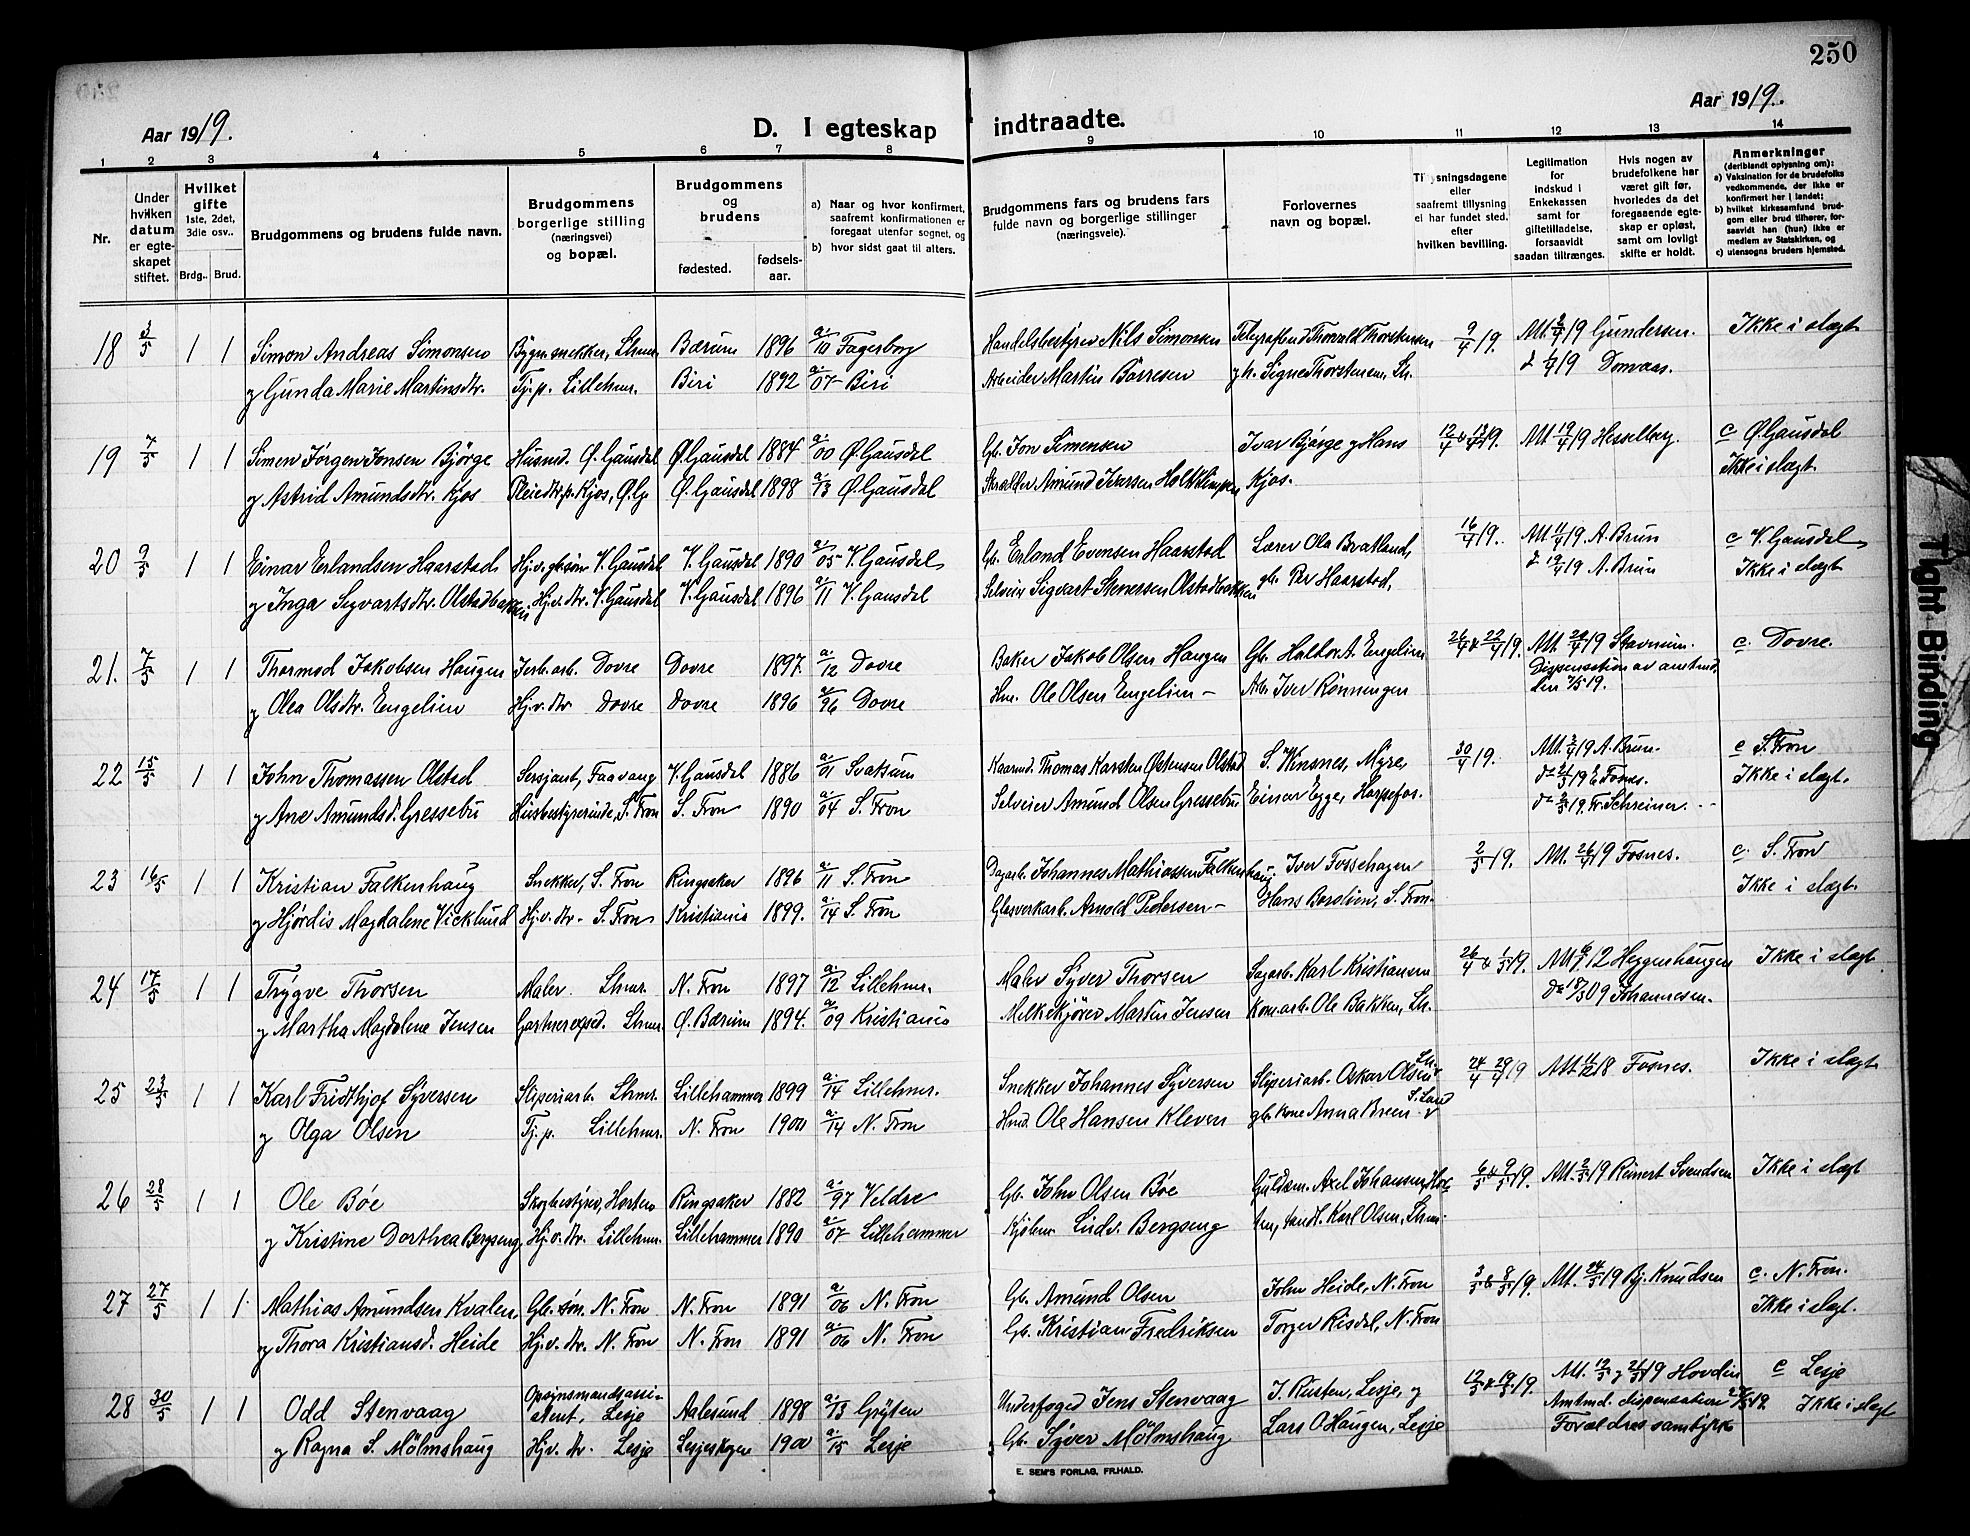 250
Aar 1919. D. I egteskap indtraadte. Aar 1919.
1 2 3 4 5 6 7 8 9 10 11 12 13 14
Nr.
Under hvilken datum er egteskapet stiftet.
Hvilket gifte 1ste, 2det, 3die osv..
Brdg.. Brud.
Brudgommens og brudens fulde navn.
Brudgommens borgerlige stilling (næringsvei) og bopæl.
Brudgommens og brudens
fødested.
fødselsaar.
a) Naar og hvor konfirmert, saafremt konfirmationen er foregaat utenfor sognet, og
b) hvor sidst gaat til alters.
Brudgommens fars og brudens fars fulde navn og borgerlige stillinger (næringsveie).
Forlovernes navn og bopæl.
Tilysningsdagene eller saafremt tillysning ei har fundet sted. efter hvilken bevilling.
Legitimation for indskud i Enkekassen samt for giftetilladelse, forsaavidt saadan tiltrænges.
Hvis nogen av brudefolkene har været gift før, hvorledes da det foregaaende egteskap er opløst, samt om lovligt skifte er holdt.
Anmerkninger (deriblandt oplysning om):
a) Vaksination for de brudefolks vedkommende, der ikke er konfirmert her i landet;
b) hvilket kirkesamfund brudgom eller brud tilhører, forsaavidt han (hun) ikke er medlem av Statskirken, og
c) utensogns bruders hjemsted.
18 3/5 1 1 Simon Andreas Simonsen Bygn.snekker, Lhmr Bærum 1896 a. 10 Fagerborg Handelsbestyrer Nils Simonsen Telegrafbud Thorvald Thorstensen 9/4 19. Att. 2/4 19 Gundersen. Ikke i slægt
og Gunda Marie Martinsdtr. Tj.p. Lillehmr. Biri 1892 a. 07 Biri Arbeider Martin Børresen og h. Signe Thorstensen, Lh. Domaas.
19 7/5 1 1 Simen Jørgen Jonsen Bjørge Husmd. Ø. Gausdal Ø. Gausdal 1884 a. 00 Ø. Gausdal Gb. Jon Simensen Ivar Bjørge og Hans 12/4 & 13/4 19. Att. 19/4 19 Hesselberg. c Ø. Gausdal
og Astrid Amundsdtr. Kjos Pleiedtr. p. Kjos, Ø.G. Ø. Gausdal 1898 a. 13 Ø. Gausdal Skrædder Amund Iversen Kjos. Ikke i slægt.
20 9/5 1 1 Einar Erlandsen Haarstad Hj.v. gb.søn V. Gausdal V. Gausdal 1890 a. 05 V. Gausdal Gb. Erland Evensen Haarstad Lærer Ola Bratland, 16/4 19. Att. 11/4 19 A. Brun c V. Gausdal
og Inga Sigvartsdtr. Olstadbakken Hj.v. dtr. V. Gausdal V. Gausdal 1896 a. 11 V. Gausdal Selveier Sigvart Stenersen Olstadbakken gb. Per Haarstad, 19 A. Brun Ikke i slægt
21. 7/5 1 1 Thormod Jakobsen Haugen Jerb.arb. Dovre Dovre 1897. a. 12 Dovre Baker Jakob Olsen Haugen Gb. Halvor A. Engelien 26/4 & 22/4 19. Att. 20/4 19 Stavnum. c. Dovre.
og Olea Olsdtr. Engelien Hj.v. dtr Dovre Dovre 1896 a. 96 Dovre Hm. Ole Olsen Engelien Arb. Iver Rønningen Dispensation av amtmd. den 7/5 19.
22 15/5 1 1 John Thomassen Olstad Sersjant, Faavang V. Gausdal 1886 a. 01 Svatsum Kaarmd. Thomas Karsten Østensen Olstad S. Winsnes, Myre, 30/4 19. Att. 3/4 19 A. Brun. c S. Fron
og Ane Amundsd. Gressebu Husbestyrerinde, S. Fron S. Fron 1890 a. 04 S. Fron Selveier Amund Olsen Gressebu Einar Egge, Harpefos. 19 E. Fosnes. Ikke i slægt.
do 2/5 19. Fr. Schreiner.
23 16/5 1 1 Kristian Falkenhaug Snekker, S. Fron Ringsaker 1896 a. 11 S. Fron Dagarb. Johannes Mathiassen Falkenhaug Iver Fossehagen 2/5 19. Att. 26/4 19 Fosnes. c. S. Fron
og Hjørdis Magdalene Vicklund Hj.v. dtr. S. Fron Kristiania 1899. a. 14 S. Fron Glasverkarb. Arnold Pedersen Hans Borslien, S. Fron. Ikke i slægt.
24 17/5 1 1 Trygve Thorsen Maler. Lhmr. N. Fron 1897 a. 12 Lillehmr. Maler Syver Thorsen Sagarb. Karl Kristiansen 26/4 & 1/5 19. Att. 12 Heggenhaugen Ikke i slægt
og Martha Magdalene Jensen Gartnerexped. Lhmr. Ø. Bærum 1894. a. 09 Kristiania Melkekjører Martin Jensen Kom.arb. Ole Bakken, Lh. do 09 Johannesen.
25 23/5 1 1 Karl Fridthjof Syversen Sliperiarb. Lhmr. Lillehammer 1899 a. 14 Lillehmr. Snekker Johannes Syversen Sliperiarb. Oskar Olsen Lh. 24/4 29/4 19 Att. 18 Fosnes. Ikke i slægt
og Olga Olsen Tj.p. Lillehmr. N. Fron 1900 a. 14 N. Fron Hmd. Ole Hansen Kleven gb.kone Anna Breen
26 28/5 1 1 Ole Bøe Skogbestyrer, Horten Ringsaker 1882 a. 97 Veldre Gb. John Olsen Bøe Guldsm. Axel Johansen, Hor- 6/5 & 9/5 19. Att. 2/5 19 Reinert Svendsen Ikke i slægt
og Kristine Dorthea Bergseng Hj.v. dtr. Lillehmr. Lillehammer 1890 a. 07 Lillehammer Kjøbm. Ludv. Bergseng ten, Karl Olsen, Lhmr.
27 27/5 1 1. Mathias Amundsen Kvalen Gb. søn. N. Fron N. Fron 1891 a. 06 N. Fron Gb. Amund Olsen John Heide, N. Fron 3/5 & 8/5 19. Att. 24/5 19 Bj. Knudsen c. N. Fron.
og Thora Kristiansd. Heide Hj.v. dtr. N. Fron N. Fron 1891 a. 06 N. Fron Gb. Kristian Fredriksen Torger Risdal, N. Fron Ikke i slægt.
28 30/5 1 1 Odd Stenvaag Opsynsmandsassistent, Lesje Aalesund 1898 a. 13 Grytten Underfoged Jens Stenvaag J. Rusten, Lesje, og 12/5 & 19/5 19. Att. 12/5 og 21/5 19 Hovdin c Lesje
og Ragna S. Mölmshaug Hj.v. dtr. Lesje Lesjeskogen 1900 a. 15 Lesje Gb. Syver Mölmshaug Lars O Haugen, Lesje Amtmd. dispensation Ikke i slægt
Forældres samtykke
E. SEM'S FORLAG, FR.HALD.
Tight Binding